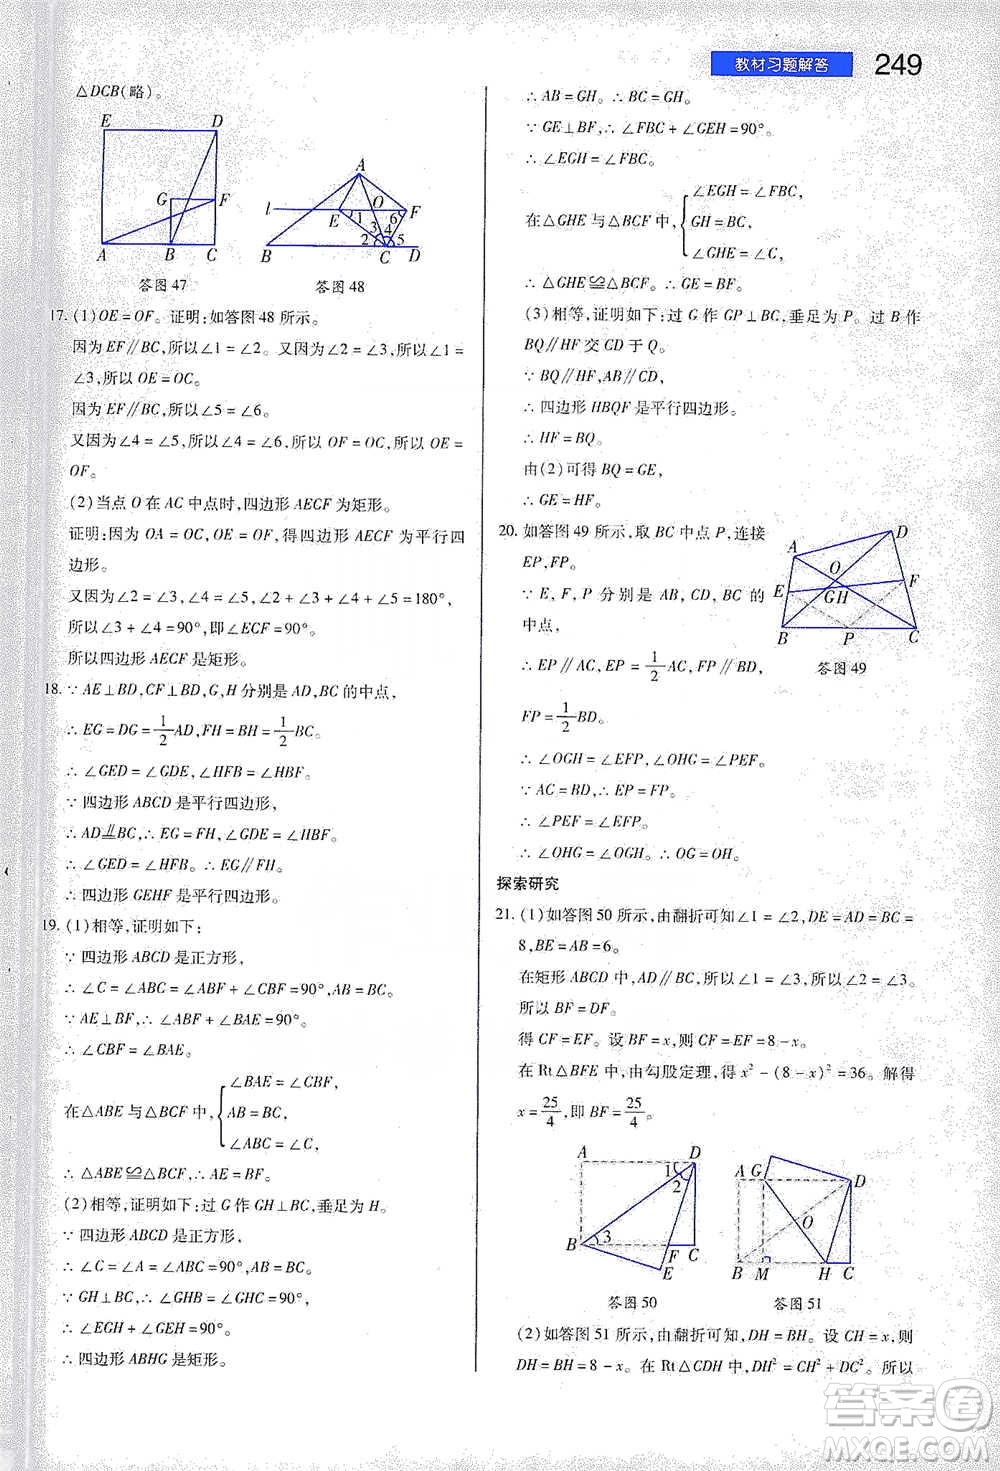 教材习题解答 249
△DCB(略)。
E D
G F
A B C
答图 47
A
l O
E 1 6 F
3 4
2 5
B C D
答图 48
17. (1)OE=OF。证明:如答图 48 所示。
因为 EF∥BC,所以∠1=∠2。又因为∠2=∠3,所以∠1=
∠3,所以 OE=OC。
因为 EF∥BC,所以∠5=∠6。
又因为∠4=∠5,所以∠4=∠6,所以 OF=OC,所以 OE=
OF。
(2)当点 O 在 AC 中点时,四边形 AECF 为矩形。
证明:因为 OA=OC,OE=OF,得四边形 AECF 为平行四
边形。
又因为∠2=∠3,∠4=∠5,∠2+∠3+∠4+∠5=180°,
所以∠3+∠4=90°,即∠ECF=90°。
所以四边形 AECF 是矩形。
18. ∵AE⊥BD,CF⊥BD,G,H 分别是 AD,BC 的中点,
∴EG=DG=1/2AD,FH=BH=1/2BC。
∴∠GED=∠GDE,∠HFB=∠HBF。
∵四边形 ABCD 是平行四边形,
∴AD⫽BC,∴EG=FH,∠GDE=∠HBF。
∴∠GED=∠HFB。∴EG∥FH。
∴四边形 GEHF 是平行四边形。
19. (1)相等,证明如下:
∵四边形 ABCD 是正方形,
∴∠C=∠ABC=∠ABF+∠CBF=90°,AB=BC。
∵AE⊥BF,∴∠ABF+∠BAE=90°。
∴∠CBF=∠BAE。
在△ABE 与△BCF 中,
∠BAE=∠CBF,
AB=BC,
∠ABC=∠C,
∴△ABE≌△BCF,∴AE=BF。
(2)相等,证明如下:过 G 作 GH⊥BC,垂足为 H。
∵四边形 ABCD 是正方形,
∴∠C=∠A=∠ABC=90°。
∵GH⊥BC,∴∠GHB=∠GHC=90°,
∴∠EGH+∠GEH=90°。
∴四边形 ABHG 是矩形。
∴AB=GH。∴BC=GH。
∵GE⊥BF,∴∠FBC+∠GEH=90°。
∴∠EGH=∠FBC。
在△GHE 与△BCF 中,
∠EGH=∠FBC,
GH=BC,
∠GHE=∠C,
∴△GHE≌△BCF。∴GE=BF。
(3)相等,证明如下:过 G 作 GP⊥BC,垂足为 P。过 B 作
BQ∥HF 交 CD 于 Q。
∵BQ∥HF,AB∥CD,
∴四边形 HBQF 是平行四边形。
∴HF=BQ。
由(2)可得 BQ=GE,
∴GE=HF。
20. 如答图 49 所示,取 BC 中点 P,连接
EP,FP。
∵E,F,P 分别是 AB,CD,BC 的
中点,
∴EP∥AC,EP=1/2AC,FP∥BD,
FP=1/2BD。
A D
O
E F
GH
B P C
答图 49
∴∠OGH=∠EFP,∠OHG=∠PEF。
∵AC=BD,∴EP=FP。
∴∠PEF=∠EFP。
∴∠OHG=∠OGH。∴OG=OH。
探索研究
21. (1)如答图 50 所示,由翻折可知∠1=∠2,DE=AD=BC=
8,BE=AB=6。
在矩形 ABCD 中,AD∥BC,所以∠1=∠3,所以∠2=∠3。
所以 BF=DF。
得 CF=EF。设 BF=x,则 CF=EF=8-x。
在 Rt△BFE 中,由勾股定理,得 x²-(8-x)²=36。解得
x=25/4,即 BF=25/4。
A D
1
2
3
B F C
E
答图 50
A G D
O
B M H C
答图 51
(2)如答图 51 所示,由翻折可知,DH=BH。设 CH=x,则
DH=BH=8-x。在 Rt△CDH 中,DH²=CH²+DC²。所以
答案圈
MXQE.COM